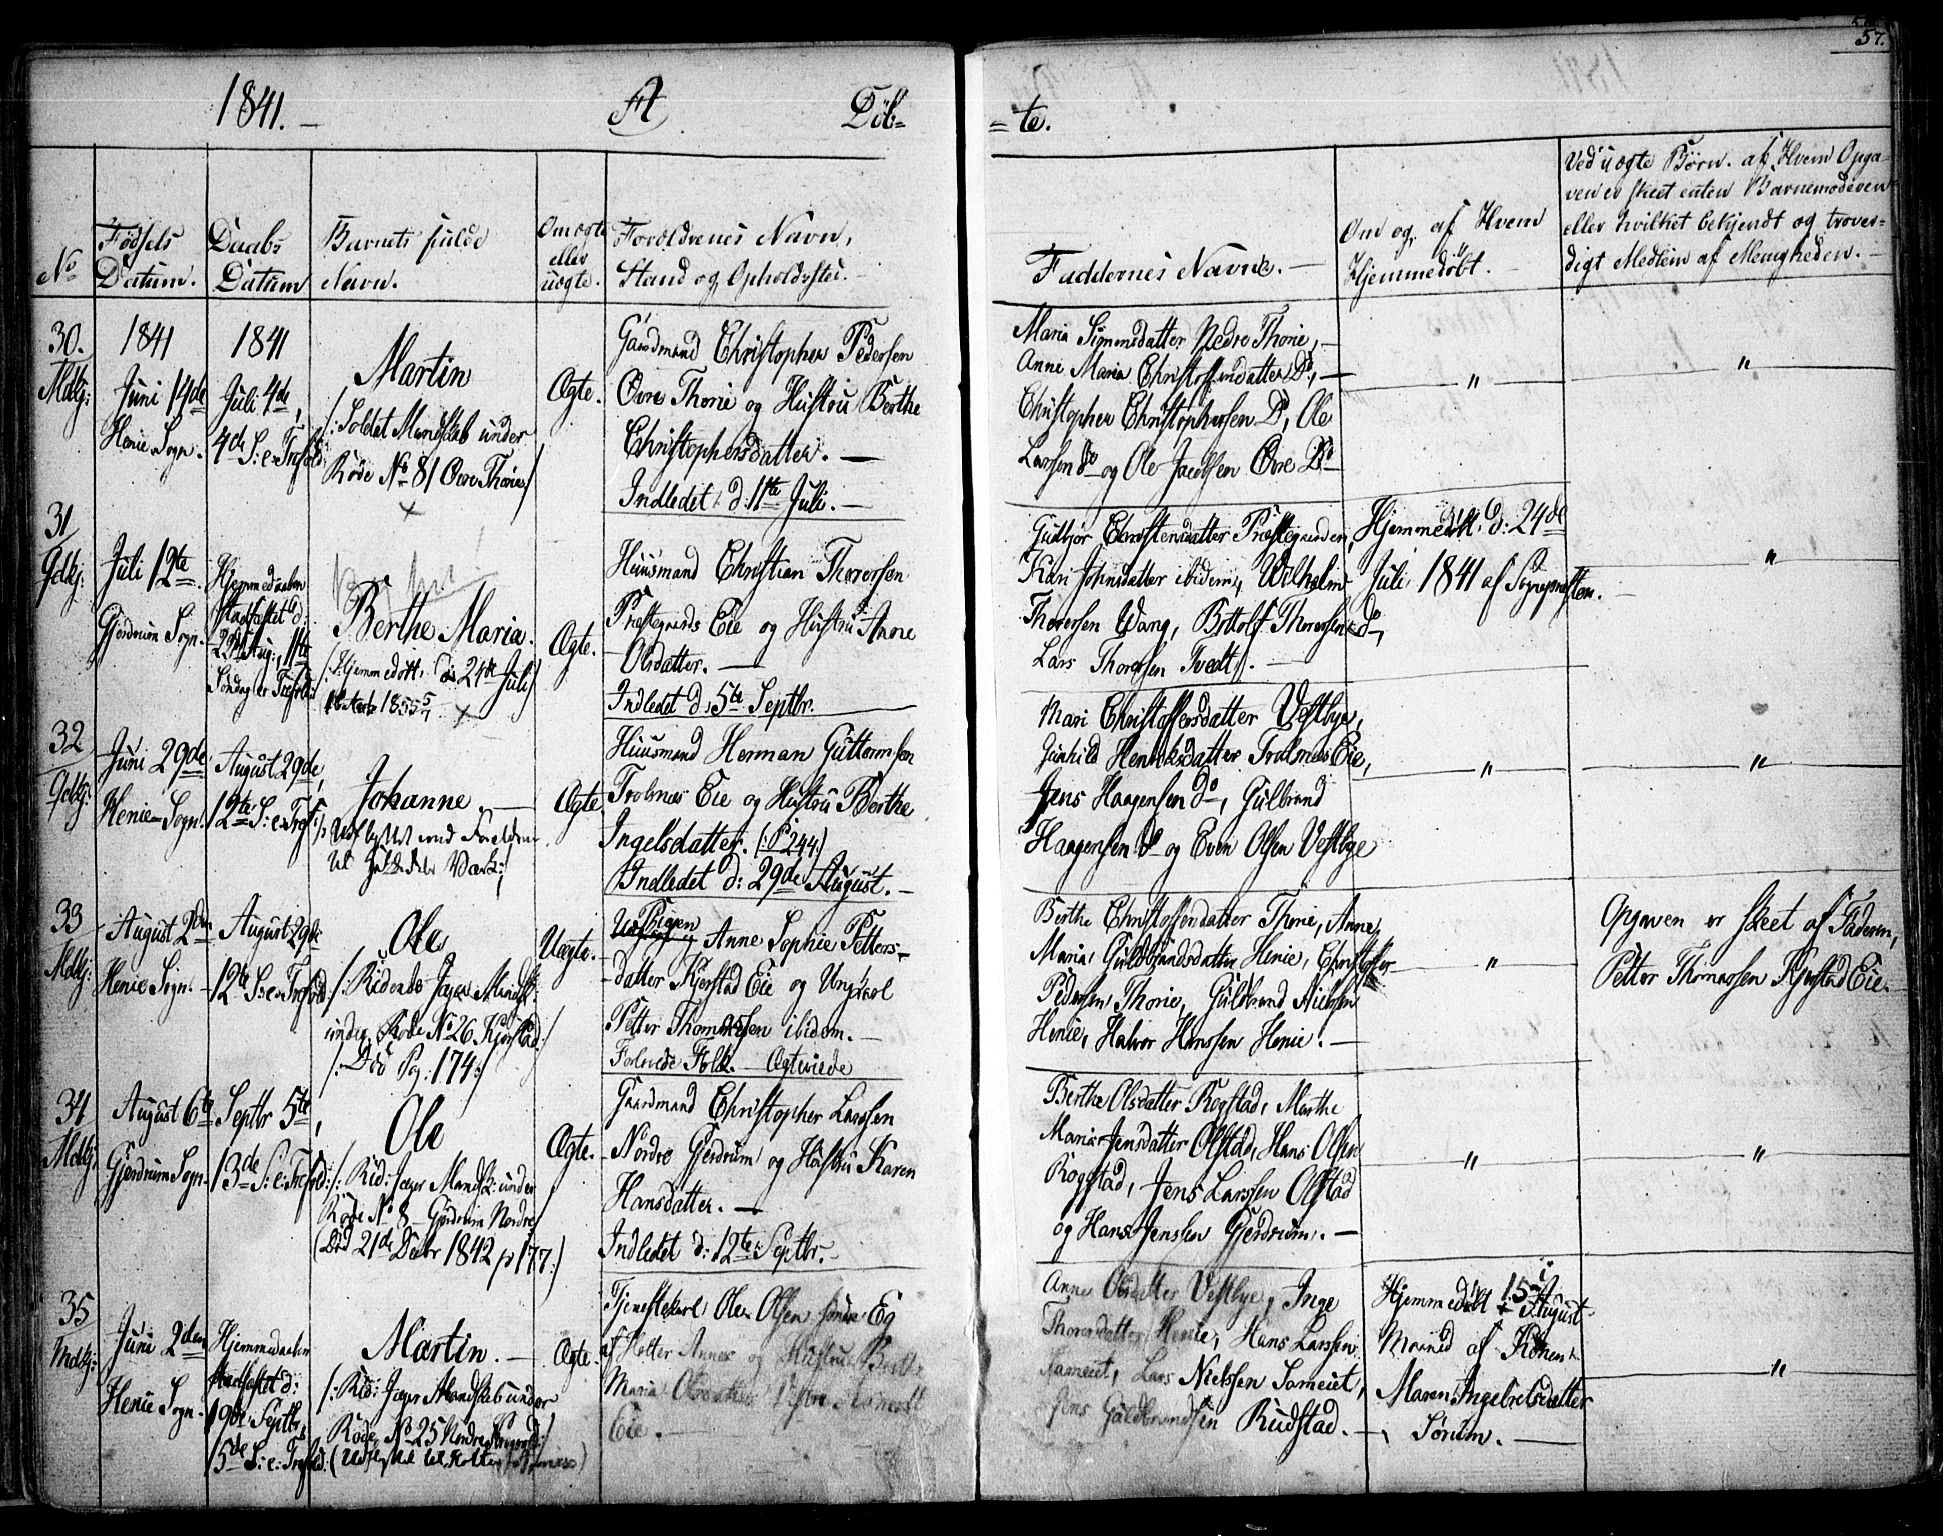 57.
1841. — A Döb=
= te.
No
Födsels
Datum.
Daabs
Datum
Barnets fulde
Navn.
Om ægte
eller
uægte.
Forældrenes Navn,
Stand og Opholdssted. —
Faddernes Navne. —
Om og, af Hvem
Hjemmedöbt. —
Ved uægte Börn. af Hvem Opga-
ven er skeet enten Barnemoderen
eller hvilket bekjendt og trover=
digt Medlem af Menigheden. —
30.
Mdkj:
1841
Juni 14de
Henie Sogn.
1841
Juli 4de,
4de S: e: Trefold:
Martin
/: Soldat Mandskab under
Rode No 81 Övre Thorie /
Ægte.
Gaardmand Christopher Pedersen
Övre Thorie og Hustru Berthe
Christophersdatter. —
Indledet d: 11te Juli. —
Maria Simensdatter Nedre Thorie, —
Anne Maria Christoffersdatter Do, —
Christopher Christophersen Do, Ole
Larssen do og Ole Jacobsen Övre Do
"
"
31
Qdkj:
Juli 12te
Gjerdrum Sogn.
Hjemmedaaben
Stadfæstet d:
22de Aug:, 11te
Söndag er Trefold:
Berthe Maria.
(: Hjemmedöbt, d: 24de Juli)
1855 5/7
Ægte.
Huusmand Christian Thorersen
Præstegaards Eie og Hustru Anne
Olsdatter. —
Indledet d. 5te Septbr.
Gudbjör Christensdatter Præstegaarden,
Kari Johnsdatter ibidem, Wilhelm
Thorersen Wang, Bottolf Thorersen do,
Lars Thorersen Tvedt. —
Hjemmedöbt, d: 24de
Juli, 1841 af Sognepræsten. —
"
32
Qdkj:
Juni 29de
Henie Sogn.
August 29de,
12te S: e: Tref:
Johanne. —
Udflyttet med Forældrene
til Værk:
Ægte
Huusmand Herman Guttormsen
Trolsnes Eie og Hustru Berthe
Ingelsdatter. (: P 244)
Indledet d: 29de August. —
Mari Christoffersdatter Vestbye,
Gunhild Henriksdatter Trolsnes Eie,
Jens Haagensen do, Gulbrand
Haagensen do og Even Olsen Vestbye
"
"
33
Mdkj:
August 2den
Henie Sogn. —
August 29de
12te S: e: Trefold:
Ole
/: Ridende Jæger Mandsk:
under Rode No 26 Kjorstad:/
/: Död Pag: 174:/
Uægte.
Pigen Anne Sophie Petters-
datter Kjorstad Eie og Ungkarl
Petter Thomassen ibidem. —
Forlovede Folk. — Ægteviede
Berthe Christoffersdatter Thorie, Anne
Maria Guldbrandsdatter Henie, Christoffer
Pedersen Thorie, Guldbrand Nielsen
Henie, Halvor Hanssen Henie. —
"
Opgaven er skeet af Faderen,
Petter Thomassen Kjorstad Eie. —
34
Mdkj
August 6te
Gjerdrum Sogn.
Septbr 5te,
13de S: e: Trefold:
Ole
/: Rid: Jæger Mandsk: under
Rode No 8 Gjerdrum Nordre
(Död 21de Decbr 1842 p 177:)
Ægte.
Gaardmand Christopher Larssen
Nordre Gjerdrum og Hustru Karen
Hansdatter. —
Indledet d: 12te Septbr. —
Berthe Olsdatter Rogstad, Marthe
Maria Jensdatter Olstad, Hans Olsen
Rogstad, Jens Larssen Olstad
og Hans Jenssen Gjerdrum. —
"
"
35
Mdkj:
Juni 2den
Henie Sogn.
Hjemmedaaben
stadfæstet d:
19de Septbr,
15de S: e: Trefold:
Martin. —
/: Rid: Jæger Mandskab under
Rode No 25 Nordre
(Udflyttet til Holter
Ægte.
Tjenestekarl Ole Olsen söndre Eg
af Holter Annex og Hustru Berthe
Maria
Eie. —
Anne Olsdatter Vestbye, Inge
Thorersdatter Henie, Hans Larssen
Sameiet, Lars Nielssen Sameiet,
Jens Guldbrandsen Rudstad. —
Hjemmedöbt 15 i August
Maaned af Konen
Maren Ingebretsdatter
Sörum. —
"